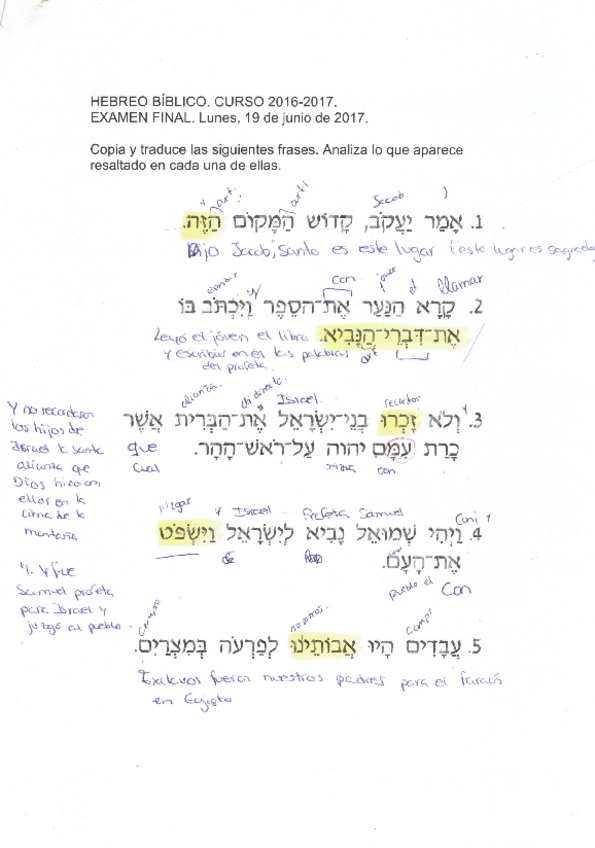 HEBREO BÍBLICO. CURSO 2016-2017.
EXAMEN FINAL. Lunes, 19 de junio de 2017.
Copia y traduce las siguientes frases. Analiza lo que aparece
resaltado en cada una de ellas.
art. arti Jacob
1. אָמַר יַעֲקֹב, קָדוֹשׁ הַמָּקוֹם הַזֶּה.
Dijo Jacob, "Santo es este lugar (este lugar es sagrado
escribir y con joven el llamar
2. קָרָא הַנַּעַר אֶת־הַסֵּפֶר וַיִּכְתֹּב בּוֹ
אֶת־דִּבְרֵי־הַנָּבִיא.
Leyó el jóven el libro
y escribió en él las palabras
del profeta.
art
alianza. Israel. recordar
3. וְלֹא זָכְרוּ בְנֵי־יִשְׂרָאֵל אֶת־הַבְּרִית אֲשֶׁר
כָּרַת עִמָּם יהוה עַל־רֹאשׁ־הָהָר.
que
cual
con
Y no recordaron
los hijos de
Israel la santa
alianza que
Dios hizo con
ellos en la
cima de la
montaña
juzgar y Israel Profeta Samuel
4. וַיְהִי שְׁמוּאֵל נָבִיא לְיִשְׂרָאֵל וַיִּשְׁפֹּט
אֶת־הָעָם.
pueblo el con
4. Y fue
Samuel profeta
para Israel y
juzgó al pueblo.
nosotros.
5. עֲבָדִים הָיוּ אֲבוֹתֵינוּ לְפַרְעֹה בְּמִצְרַיִם.
Esclavos fueron nuestros padres para el faraón
en Egipto